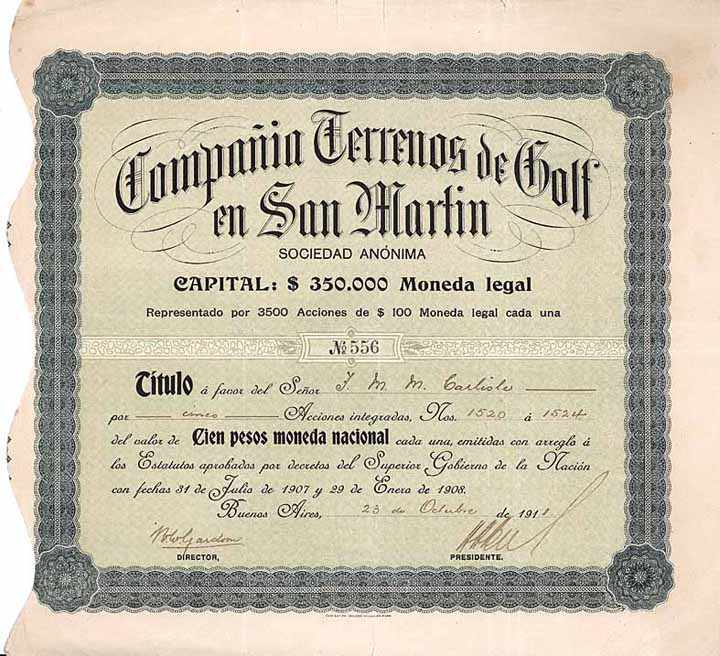 Compañia Terrenos de Golf
en San Martin
SOCIEDAD ANÓNIMA
CAPITAL: $ 350.000 Moneda legal
Representado por 3500 Acciones de $ 100 Moneda legal cada una
№ 556
Título á favor del Señor J. M. M. Carlisle
por cinco Acciones integradas, Nos. 1520 á 1524
del valor de Cien pesos moneda nacional cada una, emitidas con arreglo á
los Estatutos aprobados por decretos del Superior Gobierno de la Nación
con fechas 31 de Julio de 1907 y 29 de Enero de 1908.
Buenos Aires, 23 de Octubre de 1911
DIRECTOR, PRESIDENTE.